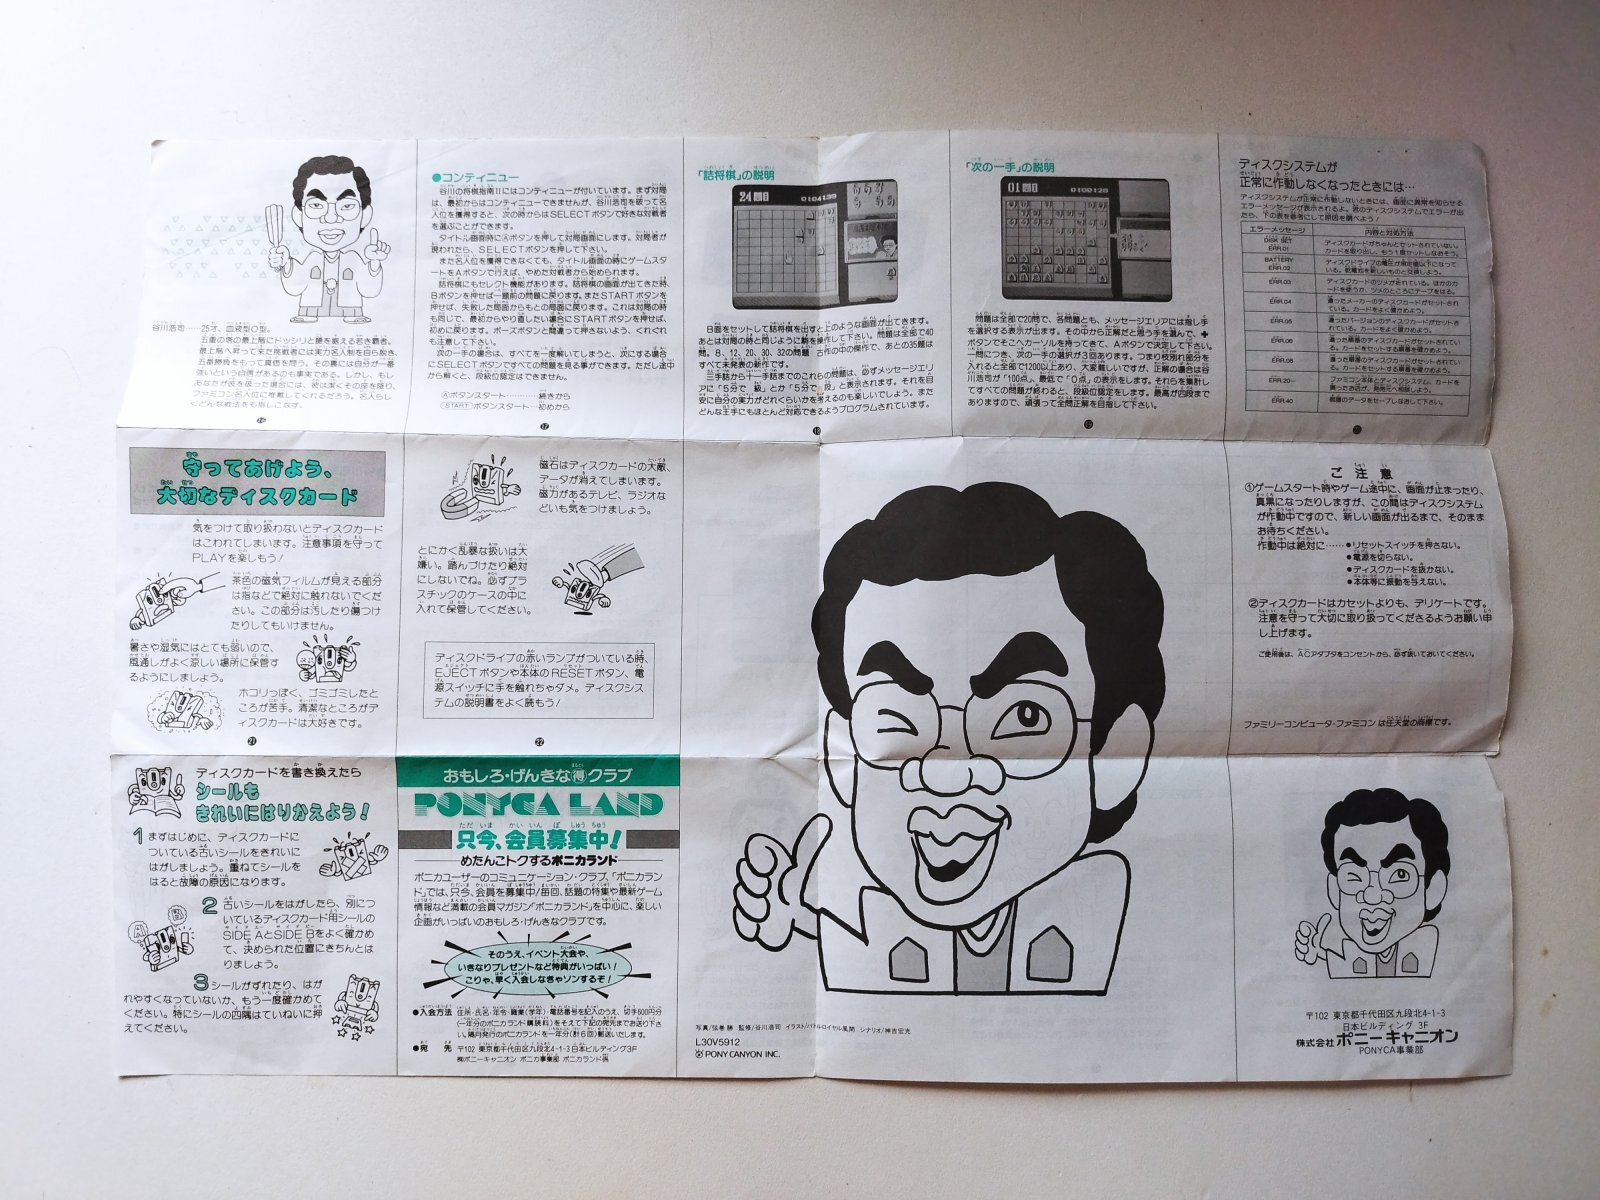 谷川浩司……25才、血液型O型。
五重の塔の最上階にドッシリと腰を据える若き覇者。
最上階へ昇って来た挑戦者には実力名人制を自ら説き、
五番勝負をもって真価を問う。その裏には自分が一番
強いという自信があるのも事実である。しかし、もし
あなたが彼を破った場合には、彼は潔くその座を降り、
ファミコン名人位に推戴してくれるだろう。名人らし
くどんな戦法をも指しこなす。
●コンティニュー
谷川の将棋指南IIにはコンティニューが付いています。まず対局
は、最初からはコンティニューできませんが、谷川浩司を破って名
人位を獲得すると、次の時からはSELECTボタンで好きな対戦者
を選ぶことができます。
タイトル画面時にⒶボタンを押して対局画面にします。対局者が
現われたら、SELECTボタンを押して下さい。
また名人位を獲得できなくても、タイトル画面の時にゲームスタ
ートをAボタンで行えば、やめた対戦者から始められます。
詰将棋にもセレクト機能があります。詰将棋の画面が出てきた時、
Bボタンを押せば一題前の問題に戻ります。またSTARTボタンを
押せば、失敗した局面からもとの局面に戻ります。これは対局の時
も同じで、最初からやり直したい場合にSTARTボタンを押せば、
初めに戻ります。ポーズボタンと間違って押さないよう、くれぐれ
も注意して下さい。
次の一手の場合は、すべてを一度解いてしまうと、次にする場合
にSELECTですべての問題を見る事ができます。ただし途中
から解くと、段級位認定はできません。
Ⓐボタンスタート…………続きから
STARTボタンスタート…初めから
17
「詰将棋」の説明
24回目
B面をセットして詰将棋を出すと上のような画面が出てきます。
あとは対局の時と同じように駒を操作して下さい。問題は全部で40
問。8、12、20、30、32の問題　古作の中の傑作で、あとの35題は
すべて未発表の新作です。
三手詰から十一手詰までのこれらの問題は、必ずメッセージエリ
アに「5分で　級」とか「5分で　段」と表示されます。それを目
安に自分の実力がどれくらいかを考えるのも楽しいでしょう。また
どんな王手にもほとんど対応できるようプログラムされています。
18
「次の一手」の説明
01回目
問題は全部で20問で、各問題とも、メッセージエリアには指し手
を選択する表示が出ます。その中から正解だと思う手を選んで、✚
ボタンでそこへカーソルを持ってきて、Aボタンで決定して下さい。
一問につき、次の一手の選択が3回あります。つまり枝別れ部分を
入れると全部で1200以上あり、大変難しいですが、正解の場合は谷
川浩司が「100点」、最低で「0点」の表示をします。それらを集計し
てすべての問題が終わると、段級位認定をします。最高が四段まで
ありますので、頑張って全問正解を目指して下さい。
19
ディスクシステムが
正常に作動しなくなったときには…
ディスクシステムが正常に作動しないときには、画面に異常を知らせる
エラーメッセージが表示されるよ。君のディスクシステムでエラーが出
たら、下の表を参考にして原因を調べよう!
エラーメッセージ 内容と対処方法
DISK SET ERR.01 ディスクカードがちゃんとセットされていない。
カードを取り出し、もう1度セットしなおそう。
BATTERY ERR.02 ディスクドライブの電圧が規定値以下になって
いる。乾電池を新しいものと交換しよう。
ERR.03 ディスクカードのツメが折れている。ほかのカ
ードを使うか、ツメのところにテープをはる。
ERR.04 違ったメーカーのディスクカードがセットされ
ている。カードをよく確かめよう。
ERR.05 違ったバージョンのディスクカードがセットさ
れている。カードをよく確かめよう。
ERR.06 違った順番のディスクカードがセットされてい
る。カードをセットする順番を確かめよう。
ERR.08 違った順番のディスクカードがセットされてい
る。カードをセットする順番を確かめよう。
ERR.20～ ファミコン本体とディスクシステム、カードを
買ったお店か、発売元へ相談しよう。
ERR.40 棋譜のデータをセーブしなおして下さい。
20
守ってあげよう、
大切なディスクカード
気をつけて取り扱わないとディスクカード
はこわれてしまいます。注意事項を守って
PLAYを楽しもう!
茶色の磁気フィルムが見える部分
は指などで絶対に触れないでくだ
さい。この部分は汚したり傷つけ
たりしてもいけません。
暑さや湿気にはとても弱いので、
風通しがよく涼しい場所に保管す
るようにしましょう。
ホコリっぽく、ゴミゴミしたと
ころが苦手。清潔なところがデ
ィスクカードは大好きです。
21
磁石はディスクカードの大敵、
データが消えてしまいます。
磁力があるテレビ、ラジオな
どいも気をつけましょう。
とにかく乱暴な扱いは大
嫌い。踏んづけたり絶対
にしないでね。必ずプラ
スチックのケースの中に
入れて保管してください。
ディスクドライブの赤いランプがついている時、
EJECTボタンや本体のRESETボタン、電
源スイッチに手を触れちゃダメ。ディスクシス
テムの説明書をよく読もう!
22
ご注意
①ゲームスタート時やゲーム途中に、画面が止まったり、
真黒になったりしますが、この間はディスクシステム
が作動中ですので、新しい画面が出るまで、そのまま
お待ちください。
作動中は絶対に……●リセットスイッチを押さない。
●電源を切らない。
●ディスクカードを抜かない。
●本体等に振動を与えない。
②ディスクカードはカセットよりも、デリケートです。
注意を守って大切に取り扱ってくださるようお願い申
し上げます。
ご使用後は、ACアダプタをコンセントから、必ず抜いておいてください。
ファミリーコンピュータ・ファミコンは任天堂の商標です。
ディスクカードを書き換えたら
シールも
きれいにはりかえよう!
1 まずはじめに、ディスクカードに
ついている古いシールをきれいに
はがしましょう。重ねてシールを
はると故障の原因になります。
2 古いシールをはがしたら、別につ
いているディスクカード用シールの
SIDE AとSIDE Bをよく確かめ
て、決められた位置にきちんとは
りましょう。
3 シールがずれたり、はが
れやすくなっていないか、もう一度確かめて
ください。特にシールの四隅はていねいに押
えてください。
おもしろ・げんきな㊝クラブ
PONYCA LAND
只今、会員募集中!
めたんこトクするポニカランド
ポニカユーザーのコミュニケーション・クラブ、「ポニカラン
ド」では、只今、会員を募集中/毎回、話題の特集や最新ゲーム
情報など満載の会員マガジン「ポニカランド」を中心に、楽しい
企画がいっぱいのおもしろ・げんきなクラブです。
そのうえ、イベント大会や、
いきなりプレゼントなど特典がいっぱい!
こりゃ、早く入会しなきゃソンするぞ!
●入会方法 住所・氏名・年令・職業(学年)・電話番号を記入のうえ、切手600円分
(一年分のポニカランド購読料)をそえて下記の宛先までお送り下さ
い。隔月発行のポニカランドを一年分(計6回)郵送いたします。
●宛　先 〒102 東京都千代田区九段北4-1-3日本ビルディング3F
㈱ポニーキャニオン ポニカ事業部 ポニカランド係
写真/弦巻勝 監修/谷川浩司 イラスト/バトルロイヤル風間 シナリオ/神吉宏充
L30V5912
PONY CANYON INC.
〒102 東京都千代田区九段北4-1-3
日本ビルディング 3F
株式会社 ポニーキャニオン
PONYCA事業部